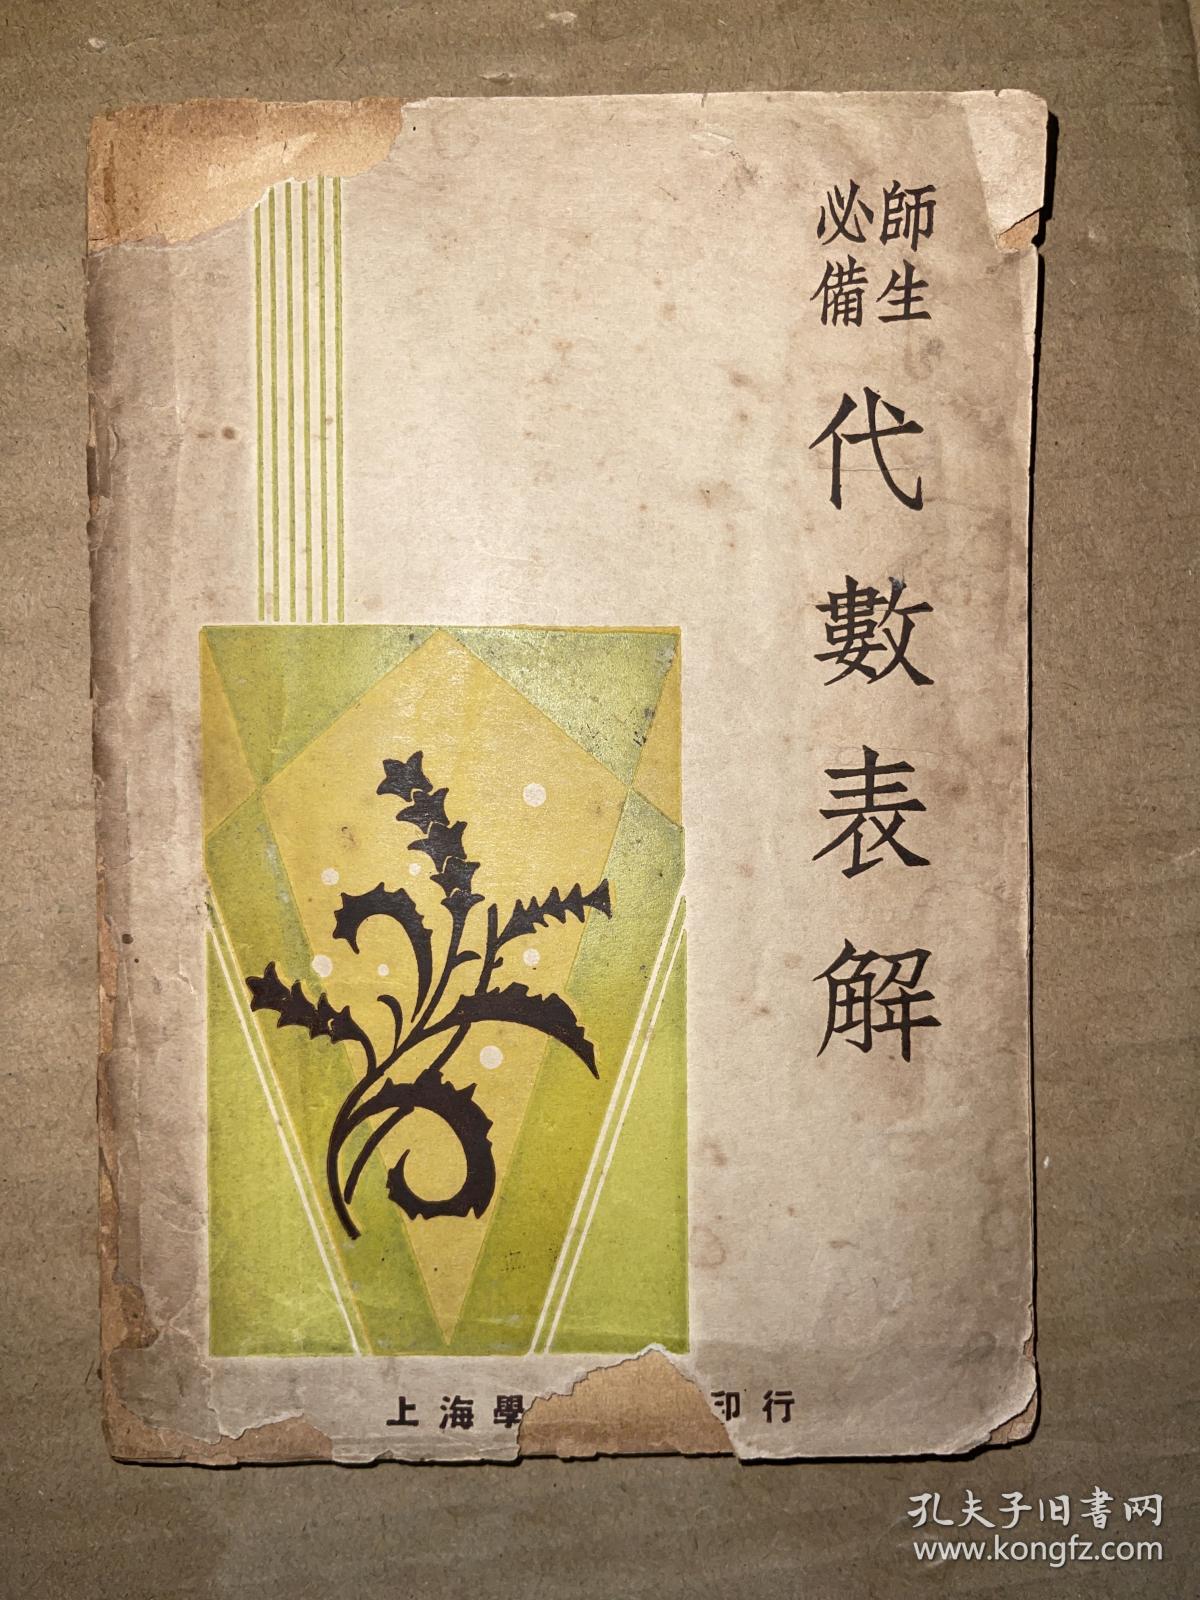 師生
必備
代數表解
上海學
印行
孔夫子旧书网
www.kongfz.com